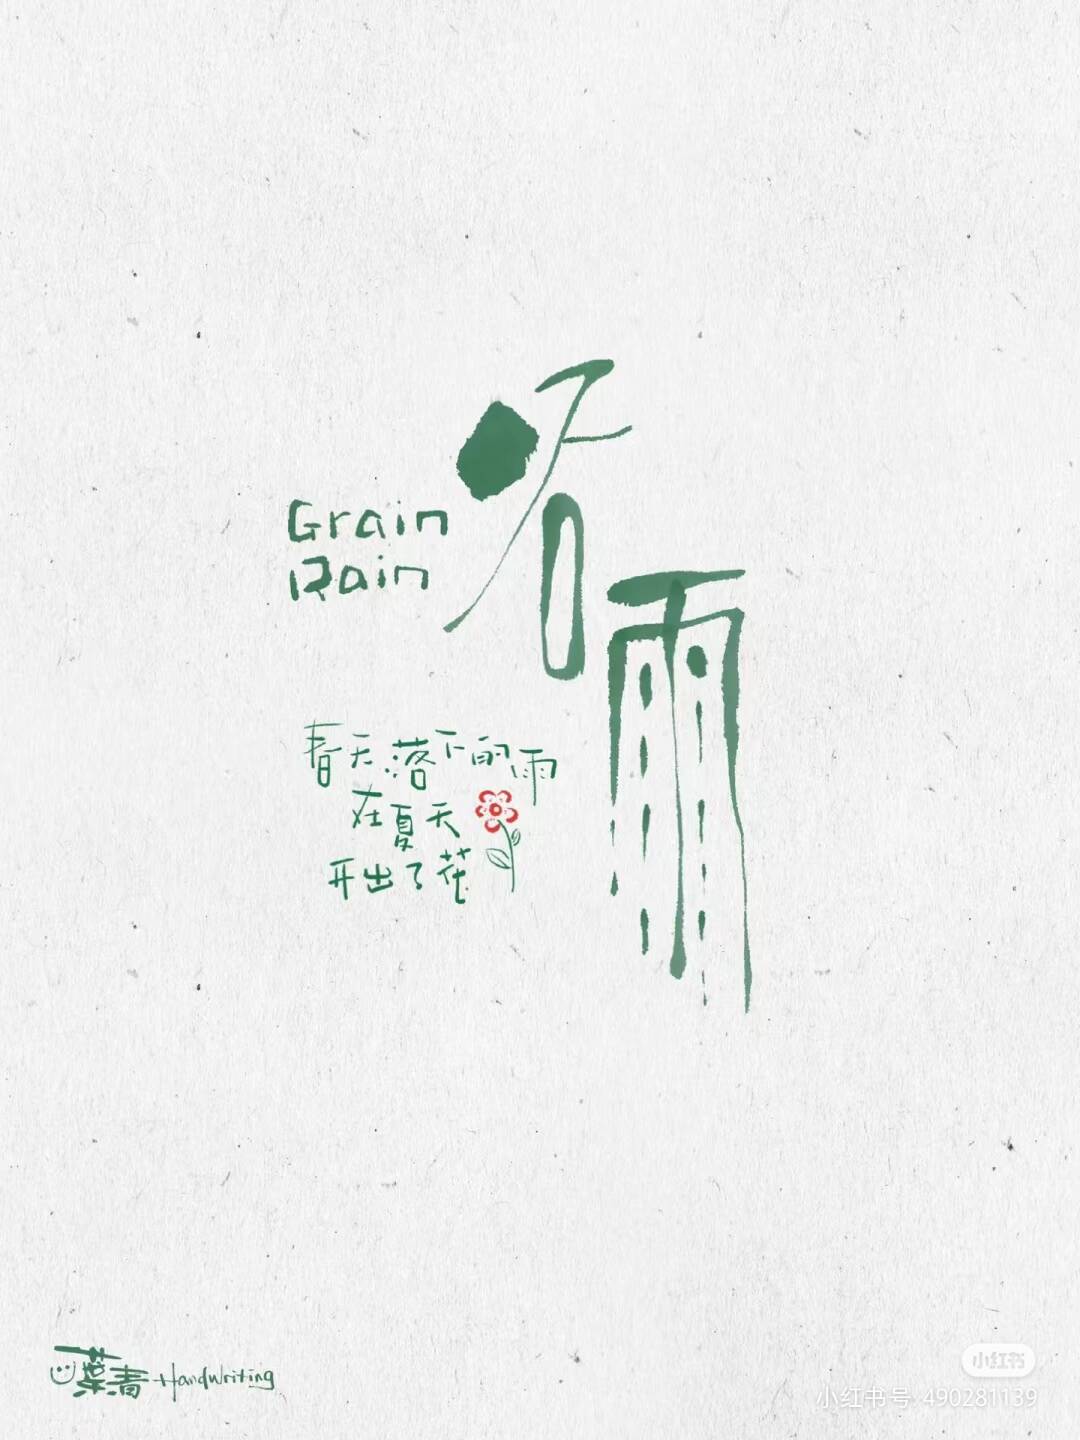 谷雨
Grain
Rain
春天落下的雨
在夏天
开出了花
葉青 Handwriting
小红书
小红书号 490281139